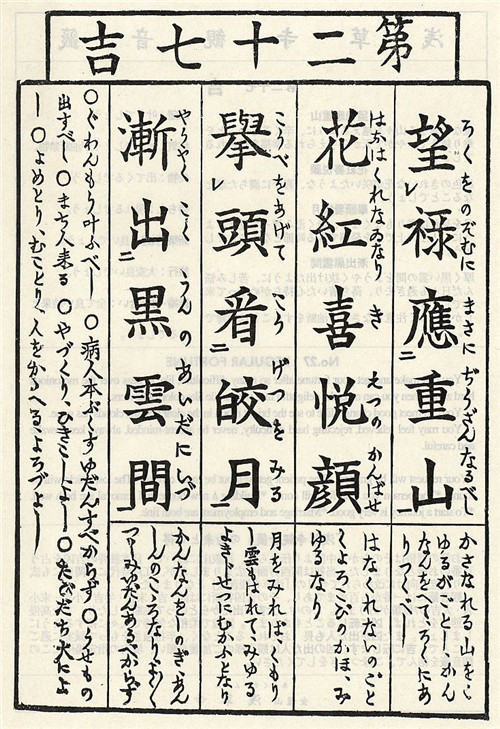 第二十七吉
ろくをのぞむに まさに ぢうざんなるべし
望レ禄應二重山一
かさなれる山をこ
ゆるがごとしかん
なんをへてろくにあ
りつくべし
はなはくれなゐなり き えつの かんばせ
花紅喜悦顔
はなくれないのごと
くよろこびのかほ、み
ゆるなり
こうべをあげて こう げつを みる
擧レ頭看二皎月一
月をみればくもり
し雲もはれてみゆる
よきじせつむかふとなり
やうやく こく うんの あいだにいづ
漸出二黒雲間一
かんなんをしのぎ、あん
しんのところなり
つゝしみゆだんあるべからず
〇ぐわんもう叶ふべし 〇病人本ぶくすゆだんすべからず 〇うせもの
出すべし 〇まち人来る 〇やづくり、ひきこしよし 〇たびだち大によ
し 〇よめとり、むことり、人をかゝへるよろづよし